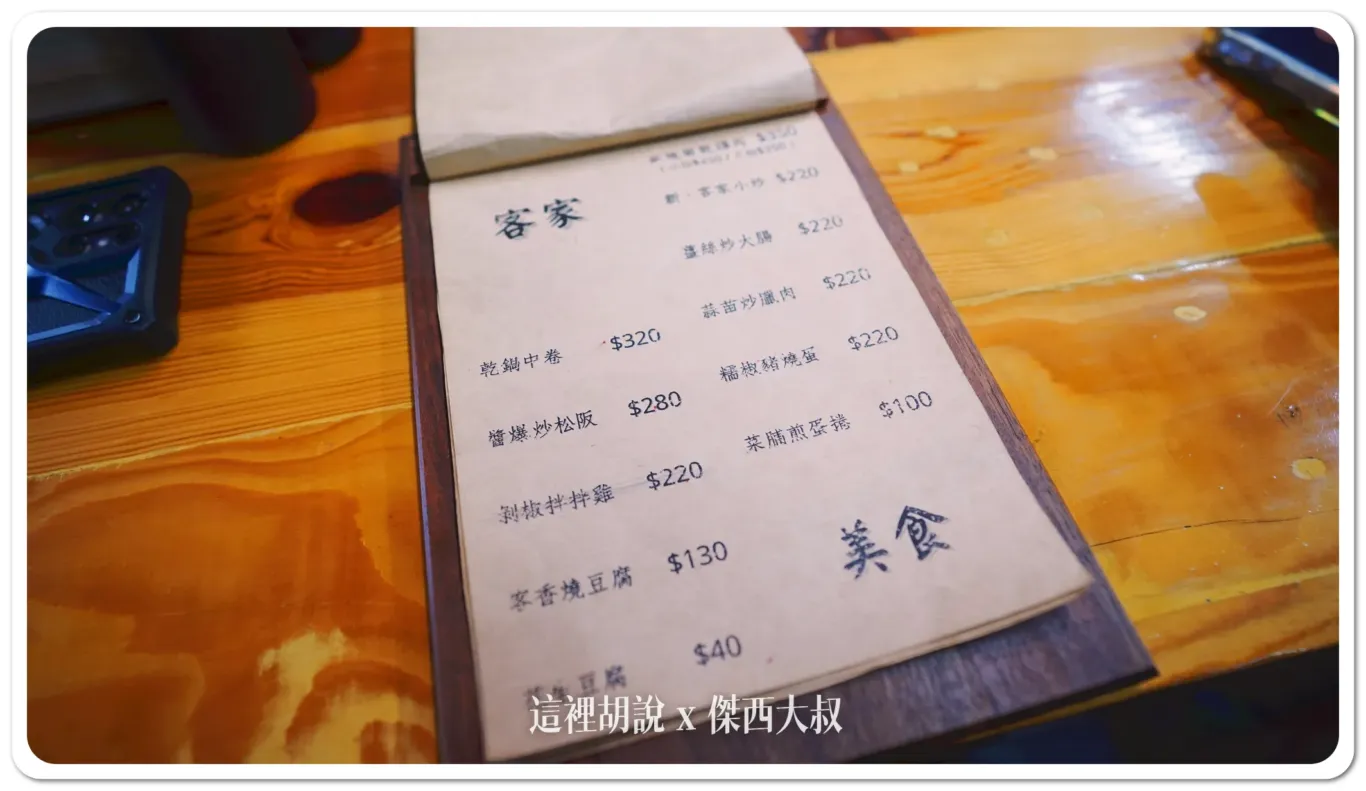 客家
$350
新．客家小炒 $220
薑絲炒大腸 $220
蒜苗炒臘肉 $220
糯椒豬燒蛋 $220
菜脯煎蛋捲 $100
乾鍋中卷 $320
醬爆炒松阪 $280
剁椒拌拌雞 $220
客香燒豆腐 $130
豆腐 $40
美食
這裡胡說 x 傑西大叔